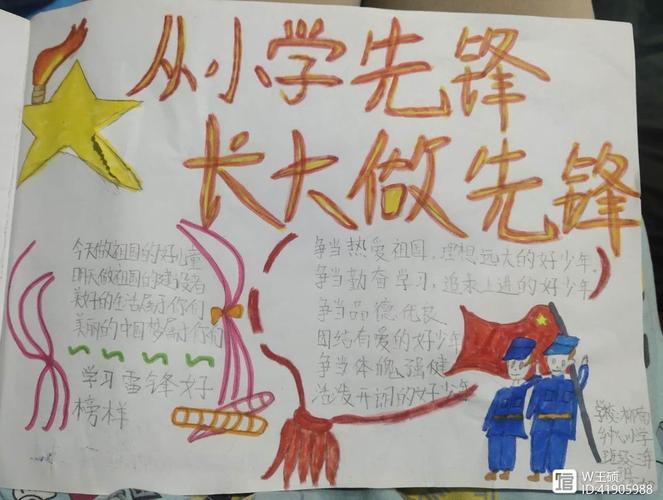 从小学先锋
长大做先锋
今天做祖国的好儿童
明天做祖国的建设者
美好的生活属于你们
美丽的中国梦属于你们
学习雷锋好
榜样
争当热爱祖国、理想远大的好少年、
争当勤奋学习、追求上进的好少年
争当品德优良
团结有爱的好少年
争当体魄强健
活泼开朗的好少年
学校:柳南
小学
班级:
W王硕
ID:41905988